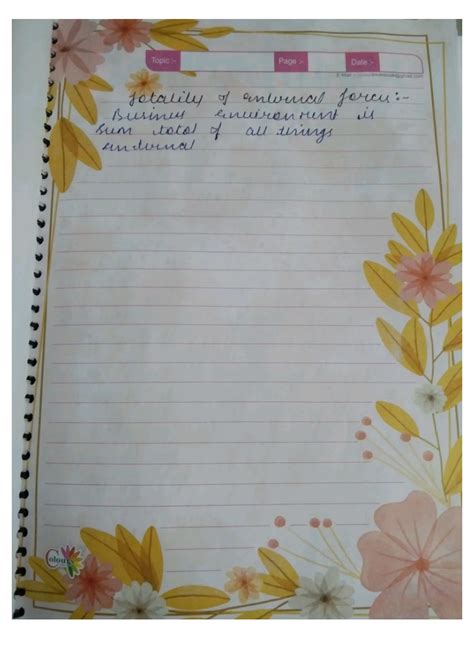 Topic :-
Page :-
Date :-
Totality of external forces :-
Business environment is
sum total of all things
external
Colour